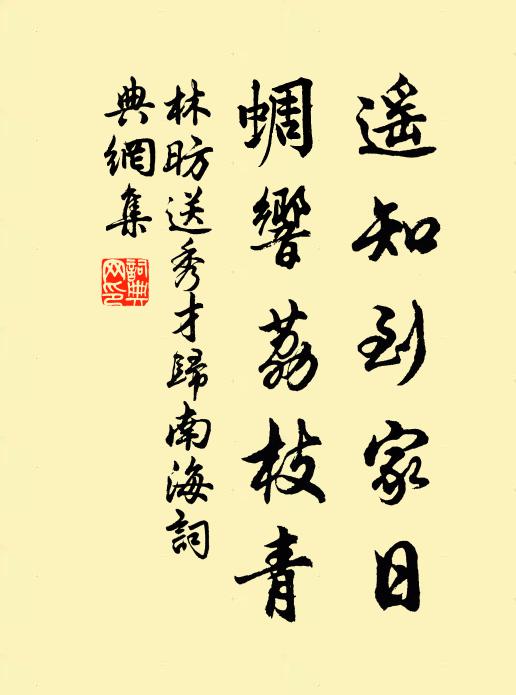 遥知到家日
蜩響荔枝青
林昉送秀才歸南海詞
典網集
詞典網印